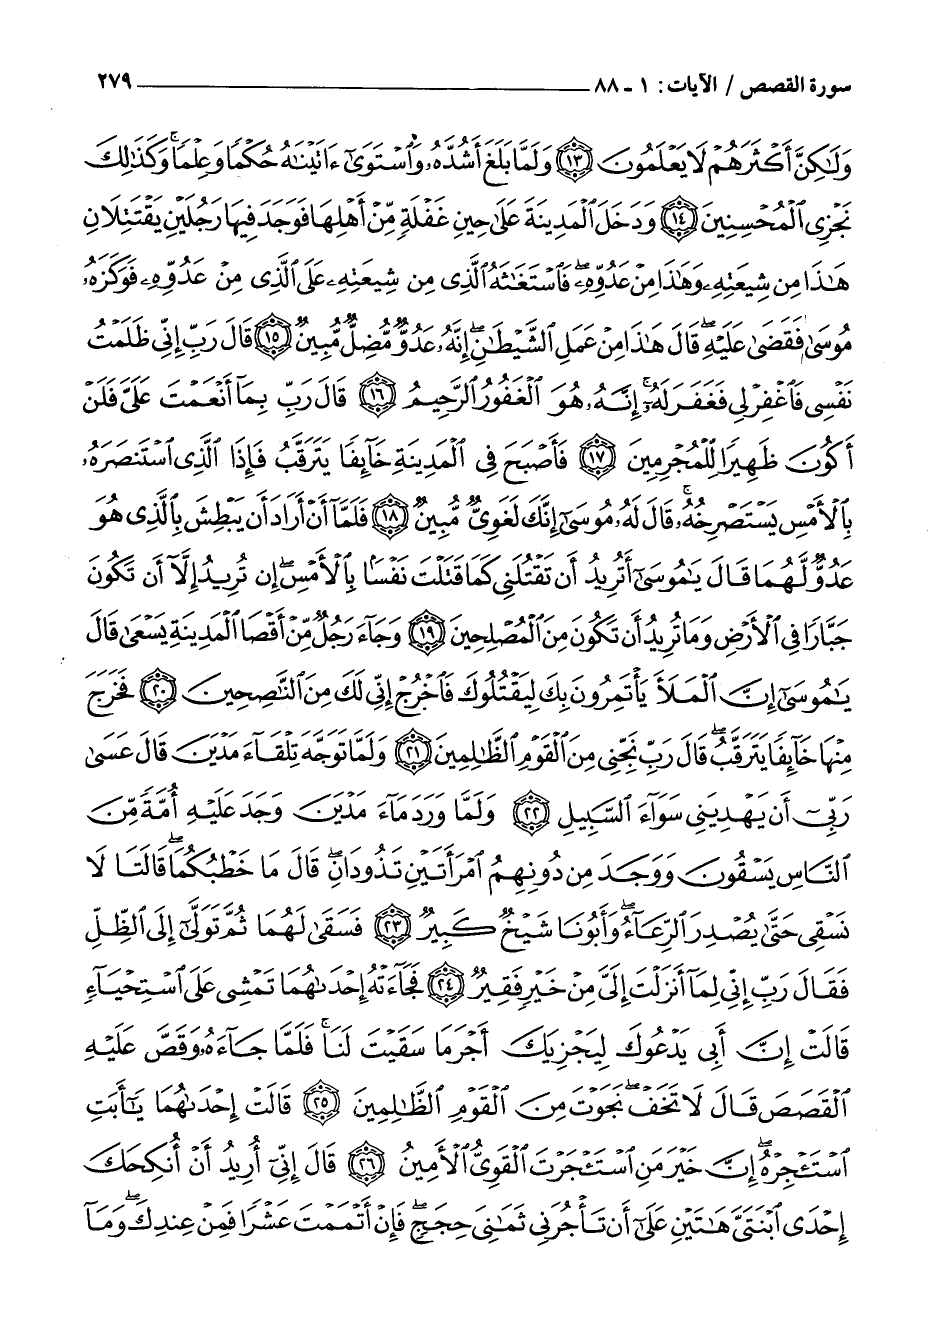 سورة القصص / الآيات: ١ - ٨٨ ٢٧٩
وَلَٰكِنَّ أَكْثَرَهُمْ لَا يَعْلَمُونَ ﴿١٣﴾ وَلَمَّا بَلَغَ أَشُدَّهُۥ وَٱسْتَوَىٰٓ ءَاتَيْنَٰهُ حُكْمًا وَعِلْمًا ۚ وَكَذَٰلِكَ
نَجْزِى ٱلْمُحْسِنِينَ ﴿١٤﴾ وَدَخَلَ ٱلْمَدِينَةَ عَلَىٰ حِينِ غَفْلَةٍ مِّنْ أَهْلِهَا فَوَجَدَ فِيهَا رَجُلَيْنِ يَقْتَتِلَانِ
هَٰذَا مِن شِيعَتِهِۦ وَهَٰذَا مِنْ عَدُوِّهِۦ ۖ فَٱسْتَغَٰثَهُ ٱلَّذِى مِن شِيعَتِهِۦ عَلَى ٱلَّذِى مِنْ عَدُوِّهِۦ فَوَكَزَهُۥ
مُوسَىٰ فَقَضَىٰ عَلَيْهِ ۖ قَالَ هَٰذَا مِنْ عَمَلِ ٱلشَّيْطَٰنِ ۖ إِنَّهُۥ عَدُوٌّ مُّضِلٌّ مُّبِينٌ ﴿١٥﴾ قَالَ رَبِّ إِنِّى ظَلَمْتُ
نَفْسِى فَٱغْفِرْ لِى فَغَفَرَ لَهُۥٓ ۚ إِنَّهُۥ هُوَ ٱلْغَفُورُ ٱلرَّحِيمُ ﴿١٦﴾ قَالَ رَبِّ بِمَآ أَنْعَمْتَ عَلَىَّ فَلَنْ
أَكُونَ ظَهِيرًا لِّلْمُجْرِمِينَ ﴿١٧﴾ فَأَصْبَحَ فِى ٱلْمَدِينَةِ خَآئِفًا يَتَرَقَّبُ فَإِذَا ٱلَّذِى ٱسْتَنصَرَهُۥ
بِٱلْأَمْسِ يَسْتَصْرِخُهُۥ ۚ قَالَ لَهُۥ مُوسَىٰٓ إِنَّكَ لَغَوِىٌّ مُّبِينٌ ﴿١٨﴾ فَلَمَّآ أَنْ أَرَادَ أَن يَبْطِشَ بِٱلَّذِى هُوَ
عَدُوٌّ لَّهُمَا قَالَ يَٰمُوسَىٰٓ أَتُرِيدُ أَن تَقْتُلَنِى كَمَا قَتَلْتَ نَفْسًۢا بِٱلْأَمْسِ ۖ إِن تُرِيدُ إِلَّآ أَن تَكُونَ
جَبَّارًا فِى ٱلْأَرْضِ وَمَا تُرِيدُ أَن تَكُونَ مِنَ ٱلْمُصْلِحِينَ ﴿١٩﴾ وَجَآءَ رَجُلٌ مِّنْ أَقْصَا ٱلْمَدِينَةِ يَسْعَىٰ قَالَ
يَٰمُوسَىٰٓ إِنَّ ٱلْمَلَأَ يَأْتَمِرُونَ بِكَ لِيَقْتُلُوكَ فَٱخْرُجْ إِنِّى لَكَ مِنَ ٱلنَّٰصِحِينَ ﴿٢٠﴾ فَخَرَجَ
مِنْهَا خَآئِفًا يَتَرَقَّبُ ۖ قَالَ رَبِّ نَجِّنِى مِنَ ٱلْقَوْمِ ٱلظَّٰلِمِينَ ﴿٢١﴾ وَلَمَّا تَوَجَّهَ تِلْقَآءَ مَدْيَنَ قَالَ عَسَىٰ
رَبِّىٓ أَن يَهْدِيَنِى سَوَآءَ ٱلسَّبِيلِ ﴿٢٢﴾ وَلَمَّا وَرَدَ مَآءَ مَدْيَنَ وَجَدَ عَلَيْهِ أُمَّةً مِّنَ
ٱلنَّاسِ يَسْقُونَ وَوَجَدَ مِن دُونِهِمُ ٱمْرَأَتَيْنِ تَذُودَانِ ۖ قَالَ مَا خَطْبُكُمَا ۖ قَالَتَا لَا
نَسْقِى حَتَّىٰ يُصْدِرَ ٱلرِّعَآءُ ۖ وَأَبُونَا شَيْخٌ كَبِيرٌ ﴿٢٣﴾ فَسَقَىٰ لَهُمَا ثُمَّ تَوَلَّىٰٓ إِلَى ٱلظِّلِّ
فَقَالَ رَبِّ إِنِّى لِمَآ أَنزَلْتَ إِلَىَّ مِنْ خَيْرٍ فَقِيرٌ ﴿٢٤﴾ فَجَآءَتْهُ إِحْدَىٰهُمَا تَمْشِى عَلَى ٱسْتِحْيَآءٍ
قَالَتْ إِنَّ أَبِى يَدْعُوكَ لِيَجْزِيَكَ أَجْرَ مَا سَقَيْتَ لَنَا ۚ فَلَمَّا جَآءَهُۥ وَقَصَّ عَلَيْهِ
ٱلْقَصَصَ قَالَ لَا تَخَفْ ۖ نَجَوْتَ مِنَ ٱلْقَوْمِ ٱلظَّٰلِمِينَ ﴿٢٥﴾ قَالَتْ إِحْدَىٰهُمَا يَٰٓأَبَتِ
ٱسْتَـْٔجِرْهُ ۖ إِنَّ خَيْرَ مَنِ ٱسْتَـْٔجَرْتَ ٱلْقَوِىُّ ٱلْأَمِينُ ﴿٢٦﴾ قَالَ إِنِّىٓ أُرِيدُ أَنْ أُنكِحَكَ
إِحْدَى ٱبْنَتَىَّ هَٰتَيْنِ عَلَىٰٓ أَن تَأْجُرَنِى ثَمَٰنِىَ حِجَجٍ ۖ فَإِنْ أَتْمَمْتَ عَشْرًا فَمِنْ عِندِكَ ۖ وَمَآ